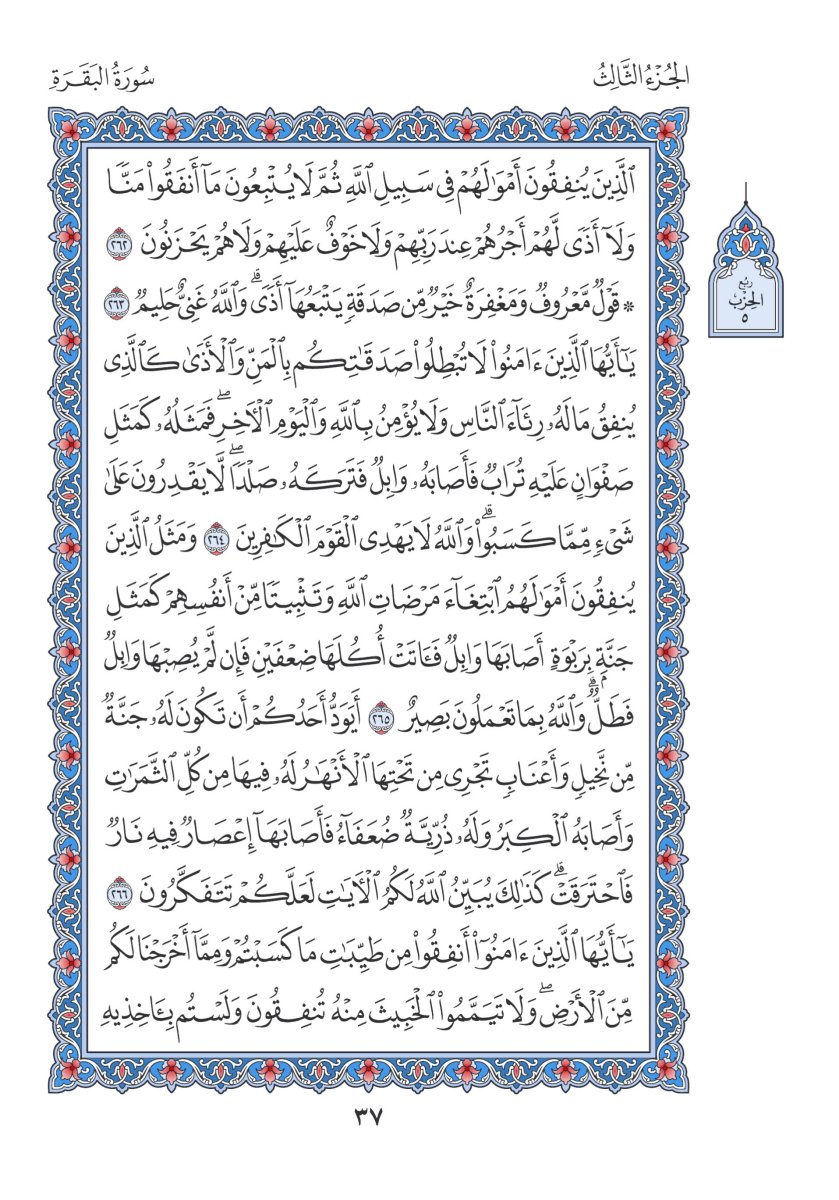 الجُزْءُ الثَّالِثُ
سُورَةُ البَقَرَةِ
ٱلَّذِينَ يُنفِقُونَ أَمْوَٰلَهُمْ فِى سَبِيلِ ٱللَّهِ ثُمَّ لَا يُتْبِعُونَ مَآ أَنفَقُوا۟ مَنًّا
وَلَآ أَذًى لَّهُمْ أَجْرُهُمْ عِندَ رَبِّهِمْ وَلَا خَوْفٌ عَلَيْهِمْ وَلَا هُمْ يَحْزَنُونَ ٢٦٢
* قَوْلٌ مَّعْرُوفٌ وَمَغْفِرَةٌ خَيْرٌ مِّن صَدَقَةٍ يَتْبَعُهَآ أَذًى ۗ وَٱللَّهُ غَنِىٌّ حَلِيمٌ ٢٦٣
يَٰٓأَيُّهَا ٱلَّذِينَ ءَامَنُوا۟ لَا تُبْطِلُوا۟ صَدَقَٰتِكُم بِٱلْمَنِّ وَٱلْأَذَىٰ كَٱلَّذِى
يُنفِقُ مَالَهُۥ رِئَآءَ ٱلنَّاسِ وَلَا يُؤْمِنُ بِٱللَّهِ وَٱلْيَوْمِ ٱلْـَٔاخِرِ ۖ فَمَثَلُهُۥ كَمَثَلِ
صَفْوَانٍ عَلَيْهِ تُرَابٌ فَأَصَابَهُۥ وَابِلٌ فَتَرَكَهُۥ صَلْدًا ۖ لَّا يَقْدِرُونَ عَلَىٰ
شَىْءٍ مِّمَّا كَسَبُوا۟ ۗ وَٱللَّهُ لَا يَهْدِى ٱلْقَوْمَ ٱلْكَٰفِرِينَ ٢٦٤ وَمَثَلُ ٱلَّذِينَ
يُنفِقُونَ أَمْوَٰلَهُمُ ٱبْتِغَآءَ مَرْضَاتِ ٱللَّهِ وَتَثْبِيتًا مِّنْ أَنفُسِهِمْ كَمَثَلِ
جَنَّةٍۭ بِرَبْوَةٍ أَصَابَهَا وَابِلٌ فَـَٔاتَتْ أُكُلَهَا ضِعْفَيْنِ فَإِن لَّمْ يُصِبْهَا وَابِلٌ
فَطَلٌّ ۗ وَٱللَّهُ بِمَا تَعْمَلُونَ بَصِيرٌ ٢٦٥ أَيَوَدُّ أَحَدُكُمْ أَن تَكُونَ لَهُۥ جَنَّةٌ
مِّن نَّخِيلٍ وَأَعْنَابٍ تَجْرِى مِن تَحْتِهَا ٱلْأَنْهَٰرُ لَهُۥ فِيهَا مِن كُلِّ ٱلثَّمَرَٰتِ
وَأَصَابَهُ ٱلْكِبَرُ وَلَهُۥ ذُرِّيَّةٌ ضُعَفَآءُ فَأَصَابَهَآ إِعْصَارٌ فِيهِ نَارٌ
فَٱحْتَرَقَتْ ۗ كَذَٰلِكَ يُبَيِّنُ ٱللَّهُ لَكُمُ ٱلْـَٔايَٰتِ لَعَلَّكُمْ تَتَفَكَّرُونَ ٢٦٦
يَٰٓأَيُّهَا ٱلَّذِينَ ءَامَنُوٓا۟ أَنفِقُوا۟ مِن طَيِّبَٰتِ مَا كَسَبْتُمْ وَمِمَّآ أَخْرَجْنَا لَكُم
مِّنَ ٱلْأَرْضِ ۖ وَلَا تَيَمَّمُوا۟ ٱلْخَبِيثَ مِنْهُ تُنفِقُونَ وَلَسْتُم بِـَٔاخِذِيهِ
ربع
الحِزْب
٥
٣٧